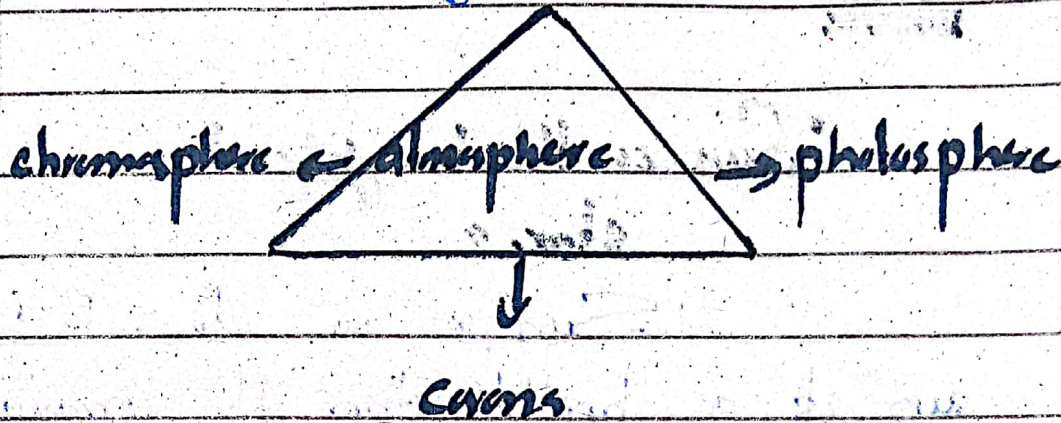 chromosphere ← atmosphere → photosphere
Corona